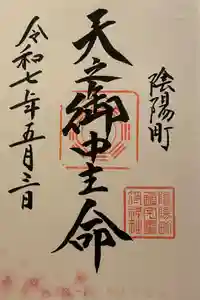 陰陽町
天之御中主命
令和七年五月三日